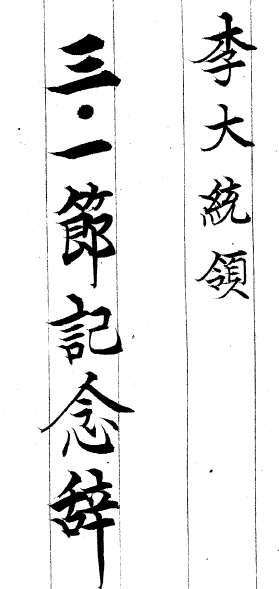 李大統領
三·一節記念辞